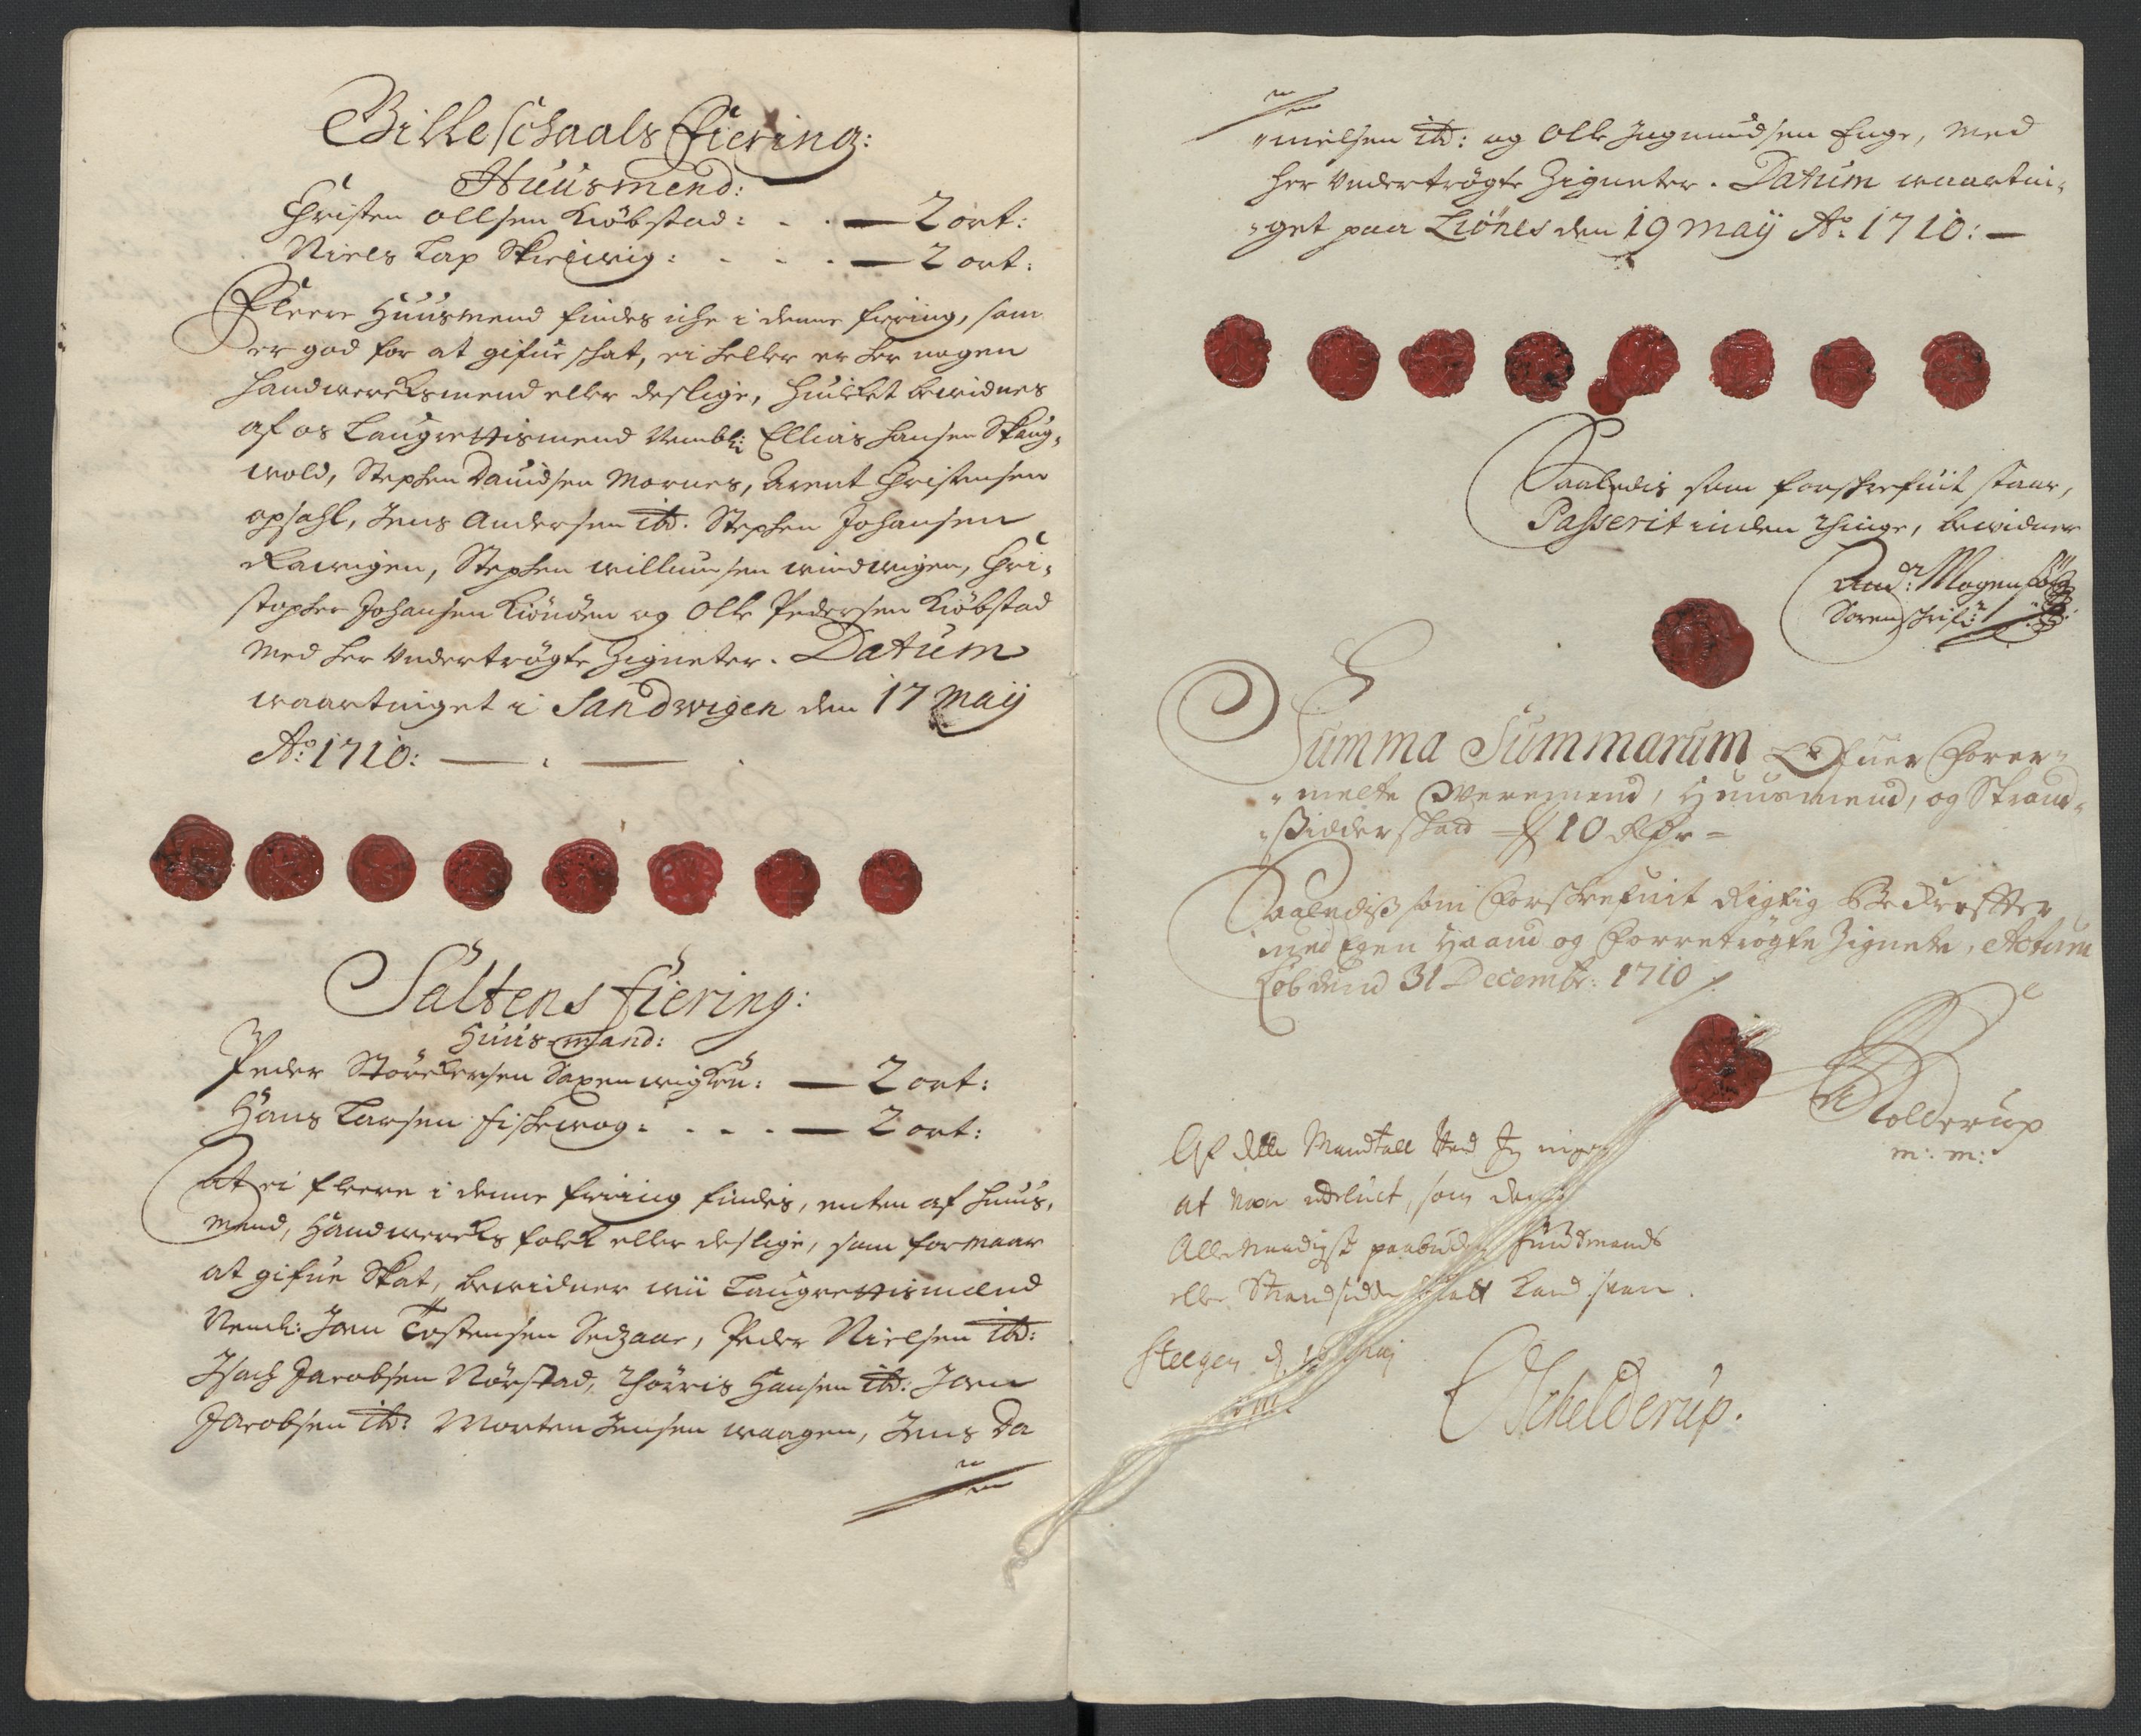 Billeschaals Fiering:
Huusmend:
Christen Ollsen Kiöbstad: . . — 2 ort:
Niels Lap Skielwig: . . . — 2 ort:
Fleere Huusmend findes iche i denne fiering, som
er god for at gifue schat, ei heller er her nogen
handwercksmend eller deslige, huilket bewidnes
af os Laugrettismend Nembl: Ellias Hansen Skaug-
wold, Stephen Dauidsen Mornes, Arent Christensen
opsahl, Jens Andersen ibd. Stephen Johansen
Rawigen, Stephen willumsen windwigen, Chri-
stopher Johansen Kiönöen og Olle Pedersen Kiöbstad
med her undertrögte Zigneter. Datum
waartinget i Sandwigen den 17 Maij
Ao: 1710: — . —
Saltens fiering:
Huus-mand:
Peder Störckersen Saxenwigken: — 2 ort:
Hans Larsen fiskewog: . . . — 2 ort:
At ei fleere i denne friing findis, enten af huus-
mend, Handwercks folck eller deslige, som formaar
at gifue Skat, bewidner wii Laugrettismend
Nembl: Joen Tostensen Sedzaas, Peder Nielsen ibd:
Isach Jacobsen Nörstad, Thörris Hansen ibd: Joen
Jacobsen ibd: Morten Jensen waagen, Jens Da
"nielsen ibd: og Olle Ingmundsen Enge, med
her undertrögte Zigneter. Datum waartin-
-get paa Liönes den 19 Maij Ao: 1710: —
Saaledis som forskrefuit staar,
Passerit inden Thinge, bewidner
And: Mogens
Sorenschrif:
Summa Summarum Ofuer Forer-
-melte Weremend, Huusmend, og Strand-
-Sidder skatt — 10 Rdr —
Saalediß som Forskrefuit Rigtig Bekreffter
med Egen Haand og Forretrögte Zignete, Actum
31 Decembr: 1710
Rolderup
m: m:
Af dette Mandtall
at udeluct, som
Allernaadigst paabudne huusmends
eller Strandsidder skatt kand svare.
Steegen d 19
Schelderup.